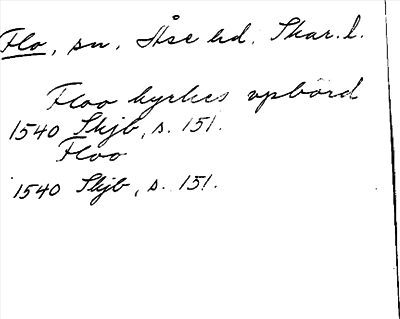 Flo, sn. Åse hd. Skar. l.
Floo kyrkes vpbörd
1540 Skjb, s. 151.
Floo
1540 Skjb, s. 151.